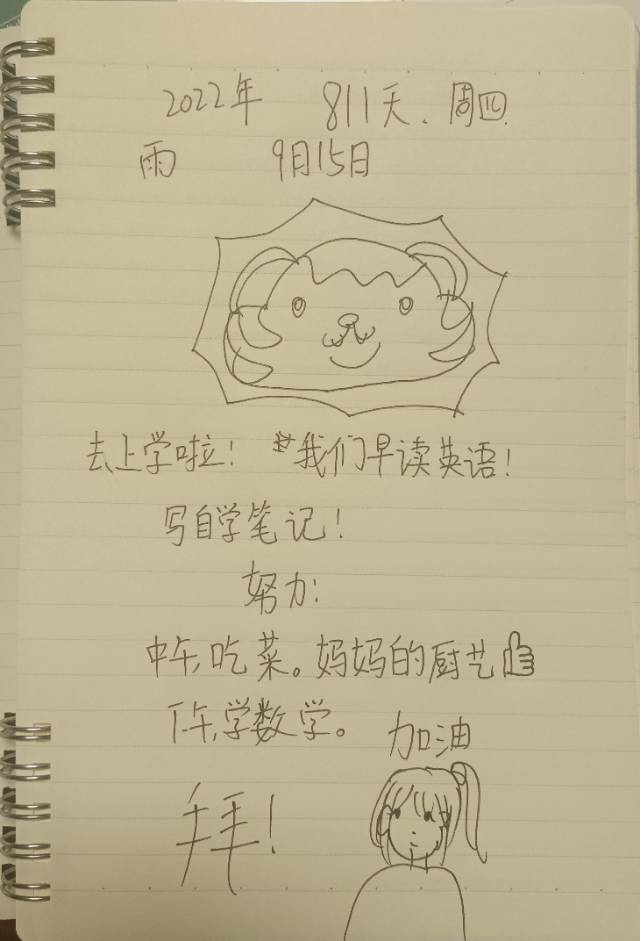 2022年 811天. 周四
雨 9月15日
去上学啦! 我们早读英语!
写自学笔记!
努力:
中午,吃菜。妈妈的厨艺
下午,学数学。 加油
拜!